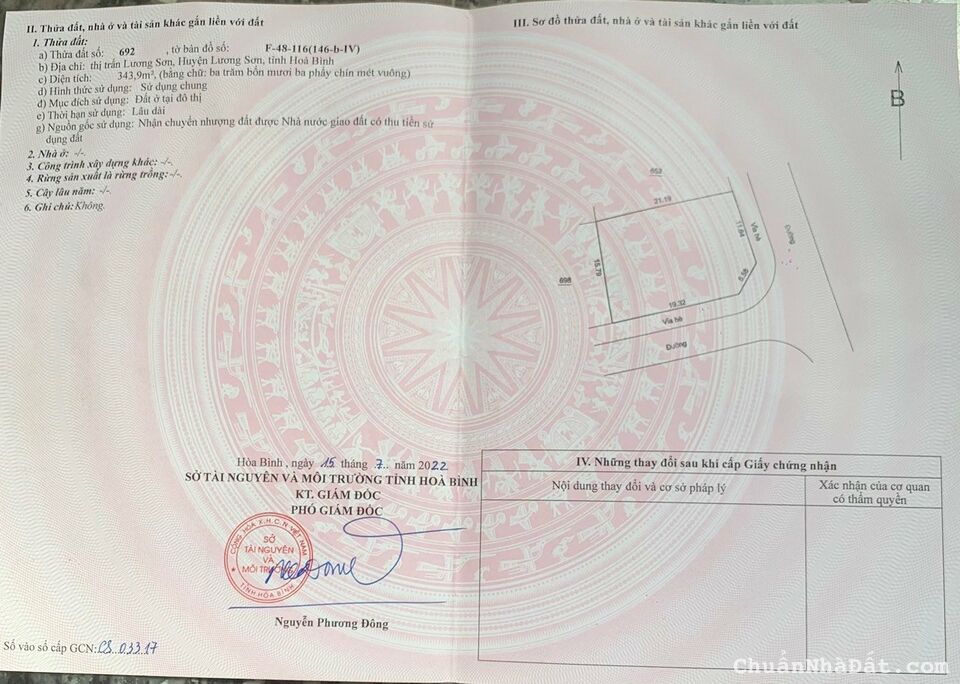 II. Thửa đất, nhà ở và tài sản khác gắn liền với đất
1. Thửa đất:
a) Thửa đất số: 692 , tờ bản đồ số: F-48-116(146-b-IV)
b) Địa chỉ: thị trấn Lương Sơn, Huyện Lương Sơn, tỉnh Hoà Bình
c) Diện tích: 343,9m², (bằng chữ: ba trăm bốn mươi ba phẩy chín mét vuông)
d) Hình thức sử dụng: Sử dụng chung
đ) Mục đích sử dụng: Đất ở tại đô thị
e) Thời hạn sử dụng: Lâu dài
g) Nguồn gốc sử dụng: Nhận chuyển nhượng đất được Nhà nước giao đất có thu tiền sử
dụng đất
2. Nhà ở: -/-
3. Công trình xây dựng khác: -/-.
4. Rừng sản xuất là rừng trồng:-/-.
5. Cây lâu năm: -/-.
6. Ghi chú: Không.
Hòa Bình , ngày 15 tháng 7.. năm 2022
SỞ TÀI NGUYÊN VÀ MÔI TRƯỜNG TỈNH HOÀ BÌNH
KT. GIÁM ĐỐC
PHÓ GIÁM ĐỐC
CỘNG HÒA X.H.C.N VIỆT NAM
SỞ
TÀI NGUYÊN
VÀ
MÔI TRƯỜNG
TỈNH HÒA BÌNH
Nguyễn Phương Đông
Số vào sổ cấp GCN: CS 03317
III. Sơ đồ thửa đất, nhà ở và tài sản khác gắn liền với đất
B
652
21.19
11.64
Vỉa hè
Đường
15.79
698
6.58
19.32
Vỉa hè
Đường
IV. Những thay đổi sau khi cấp Giấy chứng nhận
Nội dung thay đổi và cơ sở pháp lý
Xác nhận của cơ quan
có thẩm quyền
ChuẩnNhàĐất.com